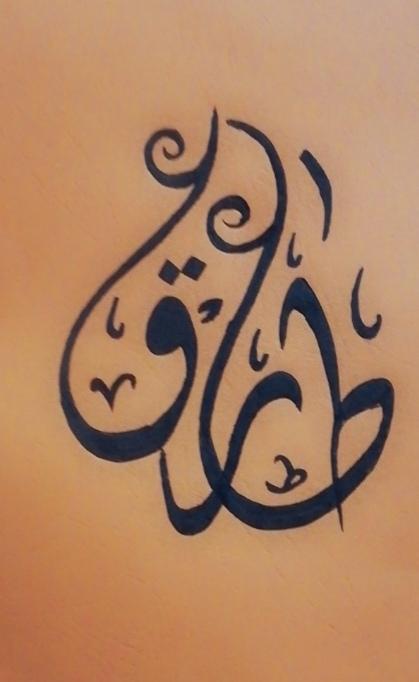 طارق